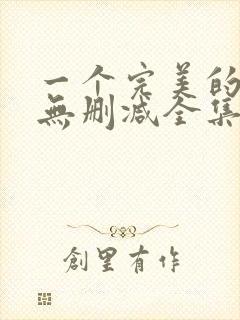 一个完美的
無删减全集
創里有作